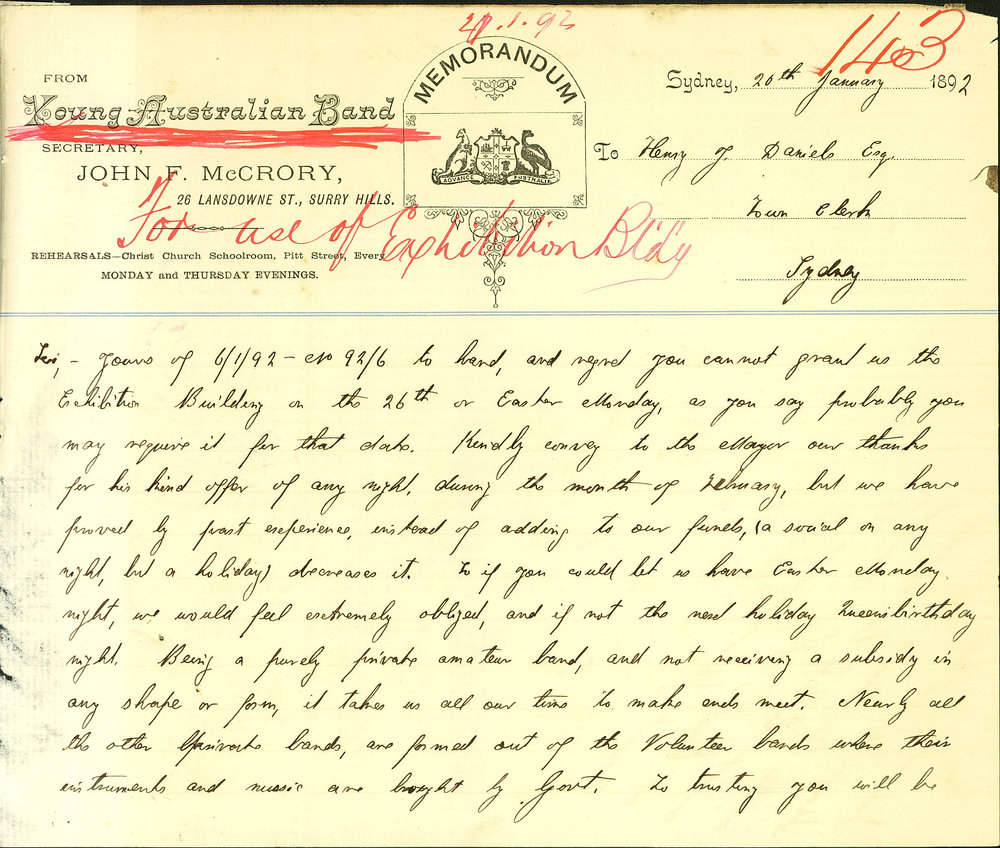 21.1.92
143
MEMORANDUM
FROM
Young Australian Band
SECRETARY,
JOHN F. McCRORY,
26 LANSDOWNE ST., SURRY HILLS.
For use of Exhibition Bldg
REHEARSALS—Christ Church Schoolroom, Pitt Street, Every
MONDAY and THURSDAY EVENINGS.
ADVANCE AUSTRALIA
Sydney, 20th January 1892
To Henry J. Daniels Esq.
Town Clerk
Sydney
Sir, - Yours of 6/1/92 - No 92/6 to hand, and regret you cannot grant us the
Exhibition Building on the 26th or Easter Monday, as you say probably you
may require it for that date. Kindly convey to the Mayor our thanks
for his kind offer of any night, during the month of February, but we have
proved by past experience, instead of adding to our funds, (a social on any
night, but a holiday) decreases it. So if you could let us have Easter Monday
night, we would feel extremely obliged, and if not the next holiday Queensbirthday
night. Being a purely private amateur band, and not receiving a subsidy in
any shape or form, it takes us all our time to make ends meet. Nearly all
the other private bands, are formed out of the Volunteer bands where their
instruments and music are bought by Govt. So trusting you will be